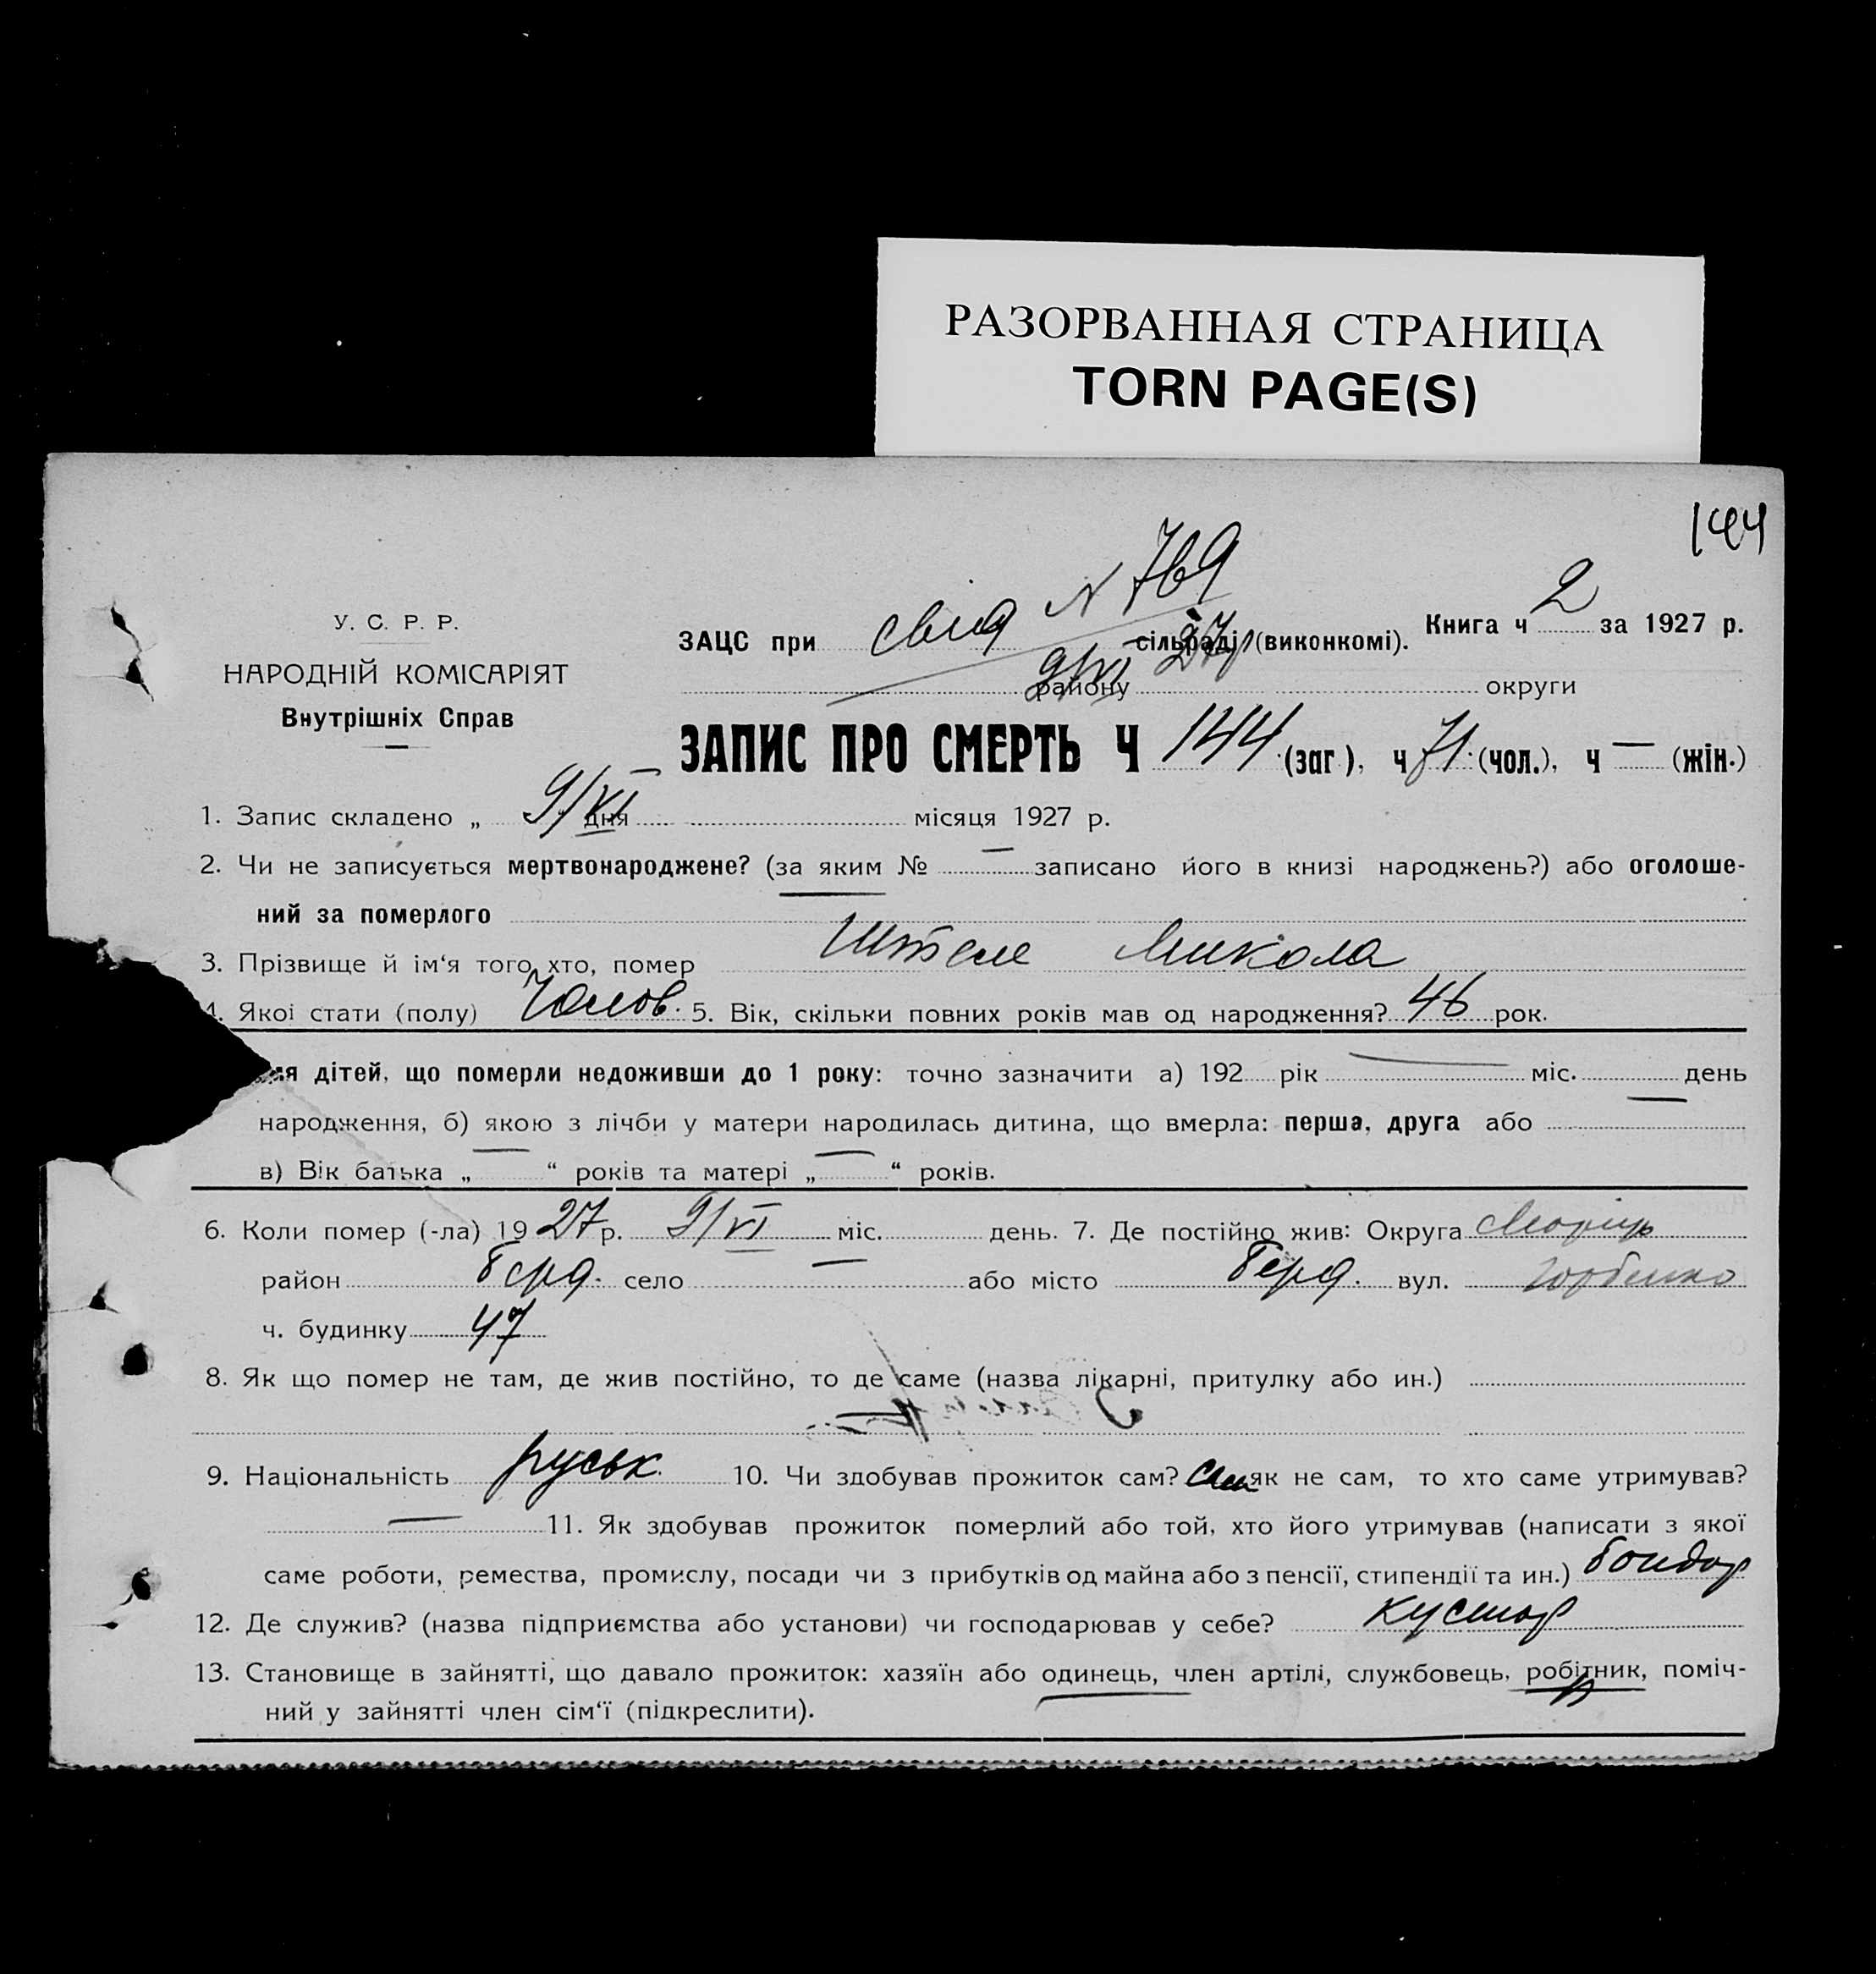 РАЗОРВАННАЯ СТРАНИЦА
TORN PAGE(S)
144
У. С. Р. Р.
НАРОДНІЙ КОМІСАРІЯТ
Внутрішніх Справ
ЗАЦС при свид N 769 сільраді (виконкомі). Книга ч 2 за 1927 р.
9/VI 27 р району округи
ЗАПИС ПРО СМЕРТЬ Ч 144 (заг), ч 71 (чол.), ч — (жін.)
1. Запис складено „ 9/VI дня місяця 1927 р.
2. Чи не записується мертвонароджене? (за яким № — записано його в книзі народжень?) або оголоше-
ний за померлого
3. Прізвище й ім‘я того, хто, помер Штеле Микола
4. Якої стати (полу) Чолов. 5. Вік, скільки повних років мав од народження? 46 рок.
ля дітей, що померли недоживши до 1 року: точно зазначити а) 192 рік — міс. день
народження, б) якою з лічби у матери народилась дитина, що вмерла: перша, друга або —
в) Вік батька „ — “ років та матері „ — “ років.
6. Коли помер (-ла) 1927 р. 9/VI міс. день. 7. Де постійно жив: Округа Маріуп
район Берд. село — або місто Берд. вул. Горбенко
ч. будинку 47
8. Як що помер не там, де жив постійно, то де саме (назва лікарні, притулку або ин.)
9. Національність руськ. 10. Чи здобував прожиток сам? Сам як не сам, то хто саме утримував?
— 11. Як здобував прожиток померлий або той, хто його утримував (написати з якої
саме роботи, ремества, промислу, посади чи з прибутків од майна або з пенсії, стипендії та ин.) бондар
12. Де служив? (назва підприємства або установи) чи господарював у себе? кустар
13. Становище в зайнятті, що давало прожиток: хазяїн або одинець, член артілі, службовець, робітник, поміч-
ний у зайнятті член сім‘ї (підкреслити).